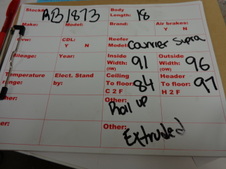 Stock#: AB1873 Body Length: 18
Make: Model: Brand: Air brakes? Y N
Year: CDL: Y N Reefer Model: Carrier Supra
Mileage: Year: Inside Width: (IW) 91 Outside Width: (OW) 96
Temperature range: Elect. Stand by: Ceiling To floor: C 2 F 84 Header To floor: H 2 F 97
Other: Roll up
Other: Extruded